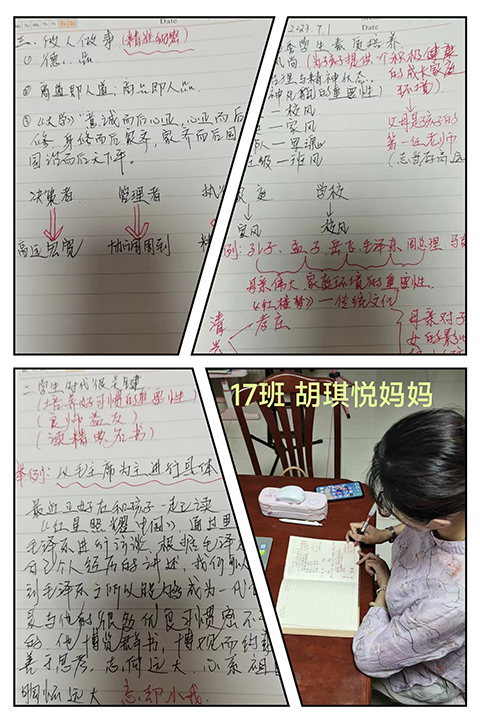 Date
三.做人做事(精进细密)
① 德…品
② 商道即人道;商品即人品
③《大学》意诚而后心正,心正而后
修,身修而后家齐,家齐而后国
国治而后天下平。
决策者 管理者
高远宏览 协调周到
Date
2023.7.1
学生素质培养
风尚(为孩子提供个积极健康
的成长家庭
环境)
心理与精神状态
父母是孩子的
第一位老师
(志当存高远
一校风
一家风
一班风
家庭 学校
家风 校风
例:孔子、孟子、岳飞、毛泽东、周总理、
母亲伟大、家庭环境的重要性。
《红楼梦》一传统文化
孝庄
母亲对子
女的影
二.学生时代很关键
(培养好习惯的重要性)
(良师益友)
(读精典名书)
举例:以毛主席为主进行具体
最近正好在和孩子一起阅读
《红星照耀中国》通过
毛泽东进行访谈,根据毛泽东
自己个人经历的讲述,我们
到毛泽东之所以能够成为一代
是与他的很多优良习惯密不
的,他博览群书,博观而约
善于思考,志向远大,心系祖
胸怀远大 忘却小我.
17班 胡琪悦妈妈